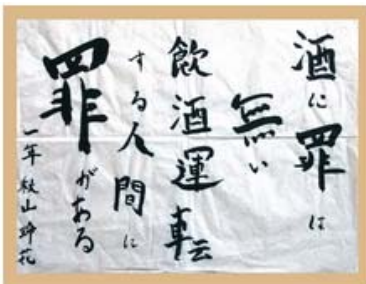 酒に罪は
無い
飲酒運転
する人間に
罪がある
一年 秋山